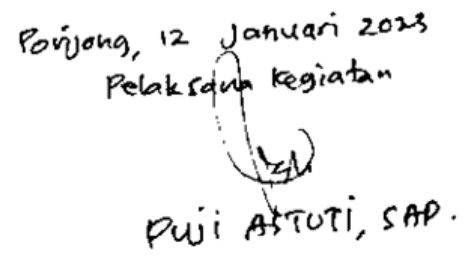 Ponjong, 12 Januari 2023
Pelaksana Kegiatan
Puji ASTUTI, SAP.